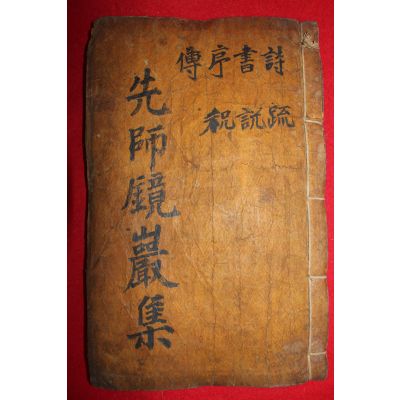 詩書序傳
疏説祝
先師鏡巖集